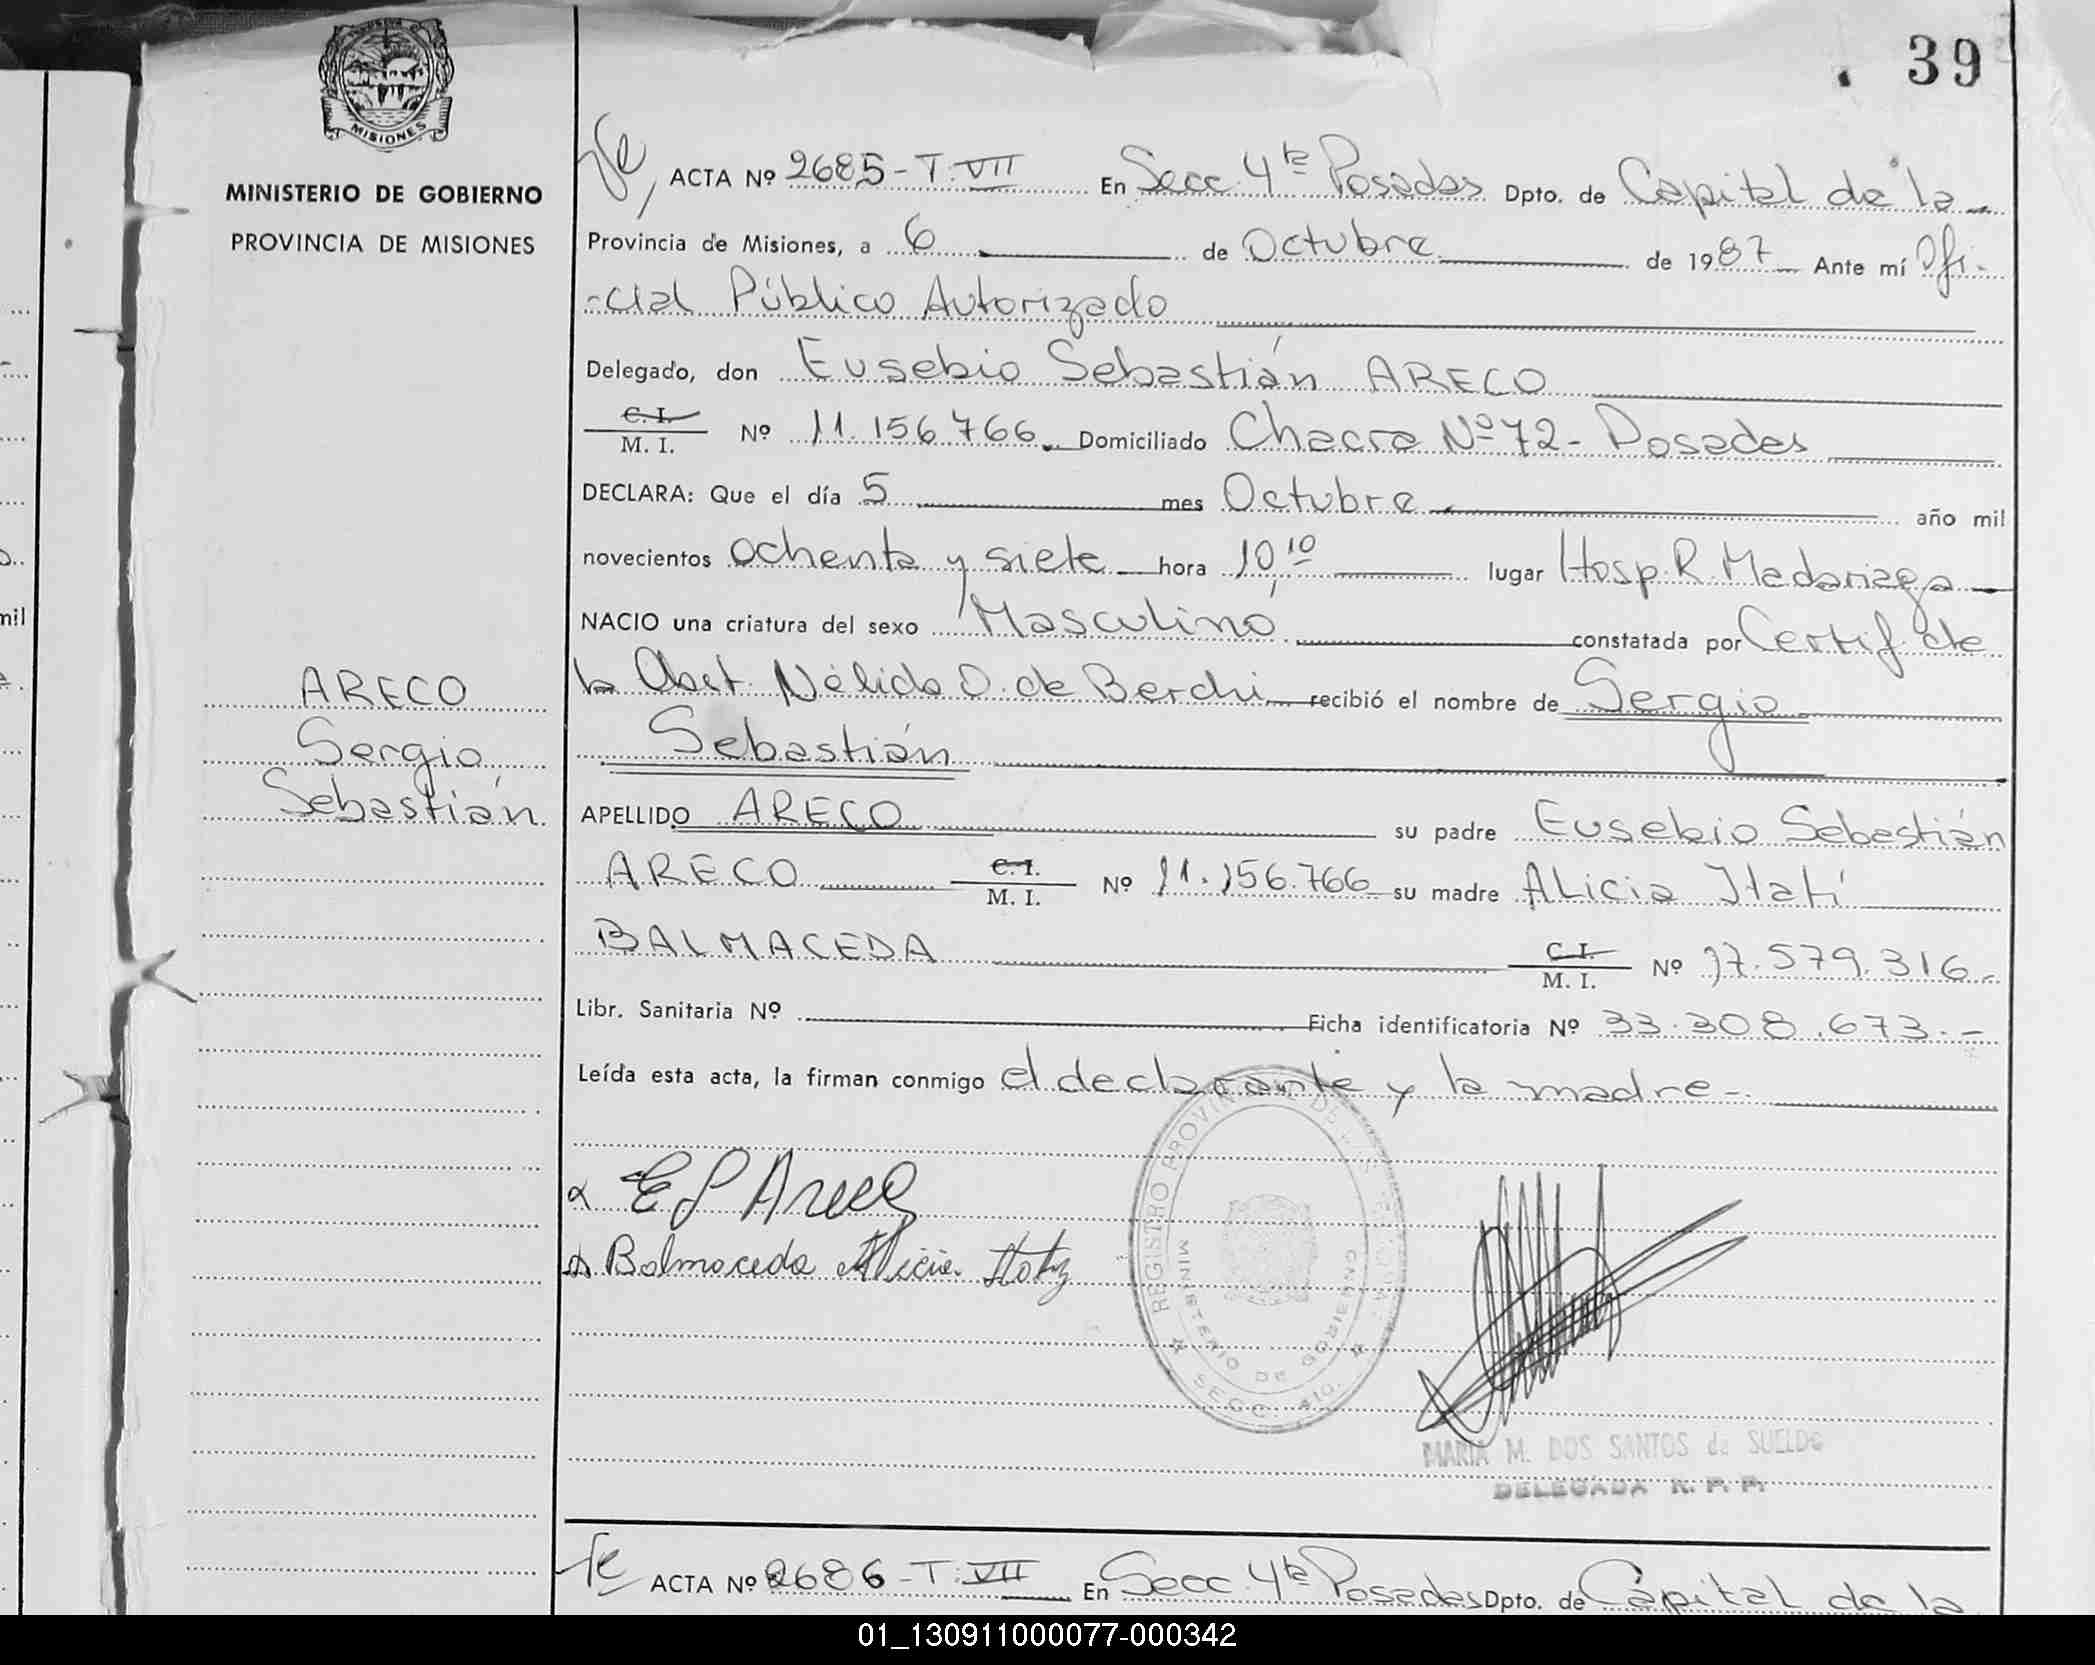 39
MISIONES
MINISTERIO DE GOBIERNO
PROVINCIA DE MISIONES
ARECO
Sergio
Sebastián
ACTA Nº 2685-T.VII En Secc. 4ta Posadas Dpto. de Capital de la
Provincia de Misiones, a 6 de Octubre de 1987 Ante mí Ofi-
-cial Público Autorizado
Delegado, don Eusebio Sebastián ARECO
C.I. / M.I. Nº 11.156.766. Domiciliado Chacra Nº 72- Posadas
DECLARA: Que el día 5 mes Octubre año mil
novecientos ochenta y siete hora 10 10 lugar Hosp. R. Madariaga
NACIO una criatura del sexo Masculino constatada por Certif. de
la Obst. Nélida O. de Berchi recibió el nombre de Sergio
Sebastián
APELLIDO ARECO su padre Eusebio Sebastián
ARECO C.I. / M.I. Nº 11.156.766 su madre Alicia Itatí
BALMACEDA C.I. / M.I. Nº 17.579.316.-
Libr. Sanitaria Nº Ficha identificatoria Nº 33.308.673.-
Leída esta acta, la firman conmigo el declarante y la madre-.
E S Areco
Balmaceda Alicia Itaty
REGISTRO PROVINCIAL DE LAS PERSONAS
MINISTERIO DE GOBIERNO
SECC. 4ta.
MARIA M. DOS SANTOS de SUELDO
DELEGADA R. P. P.
ACTA Nº 2686-T.VII En Secc. 4ta Posadas Dpto. de Capital de la
mil
01_130911000077-000342